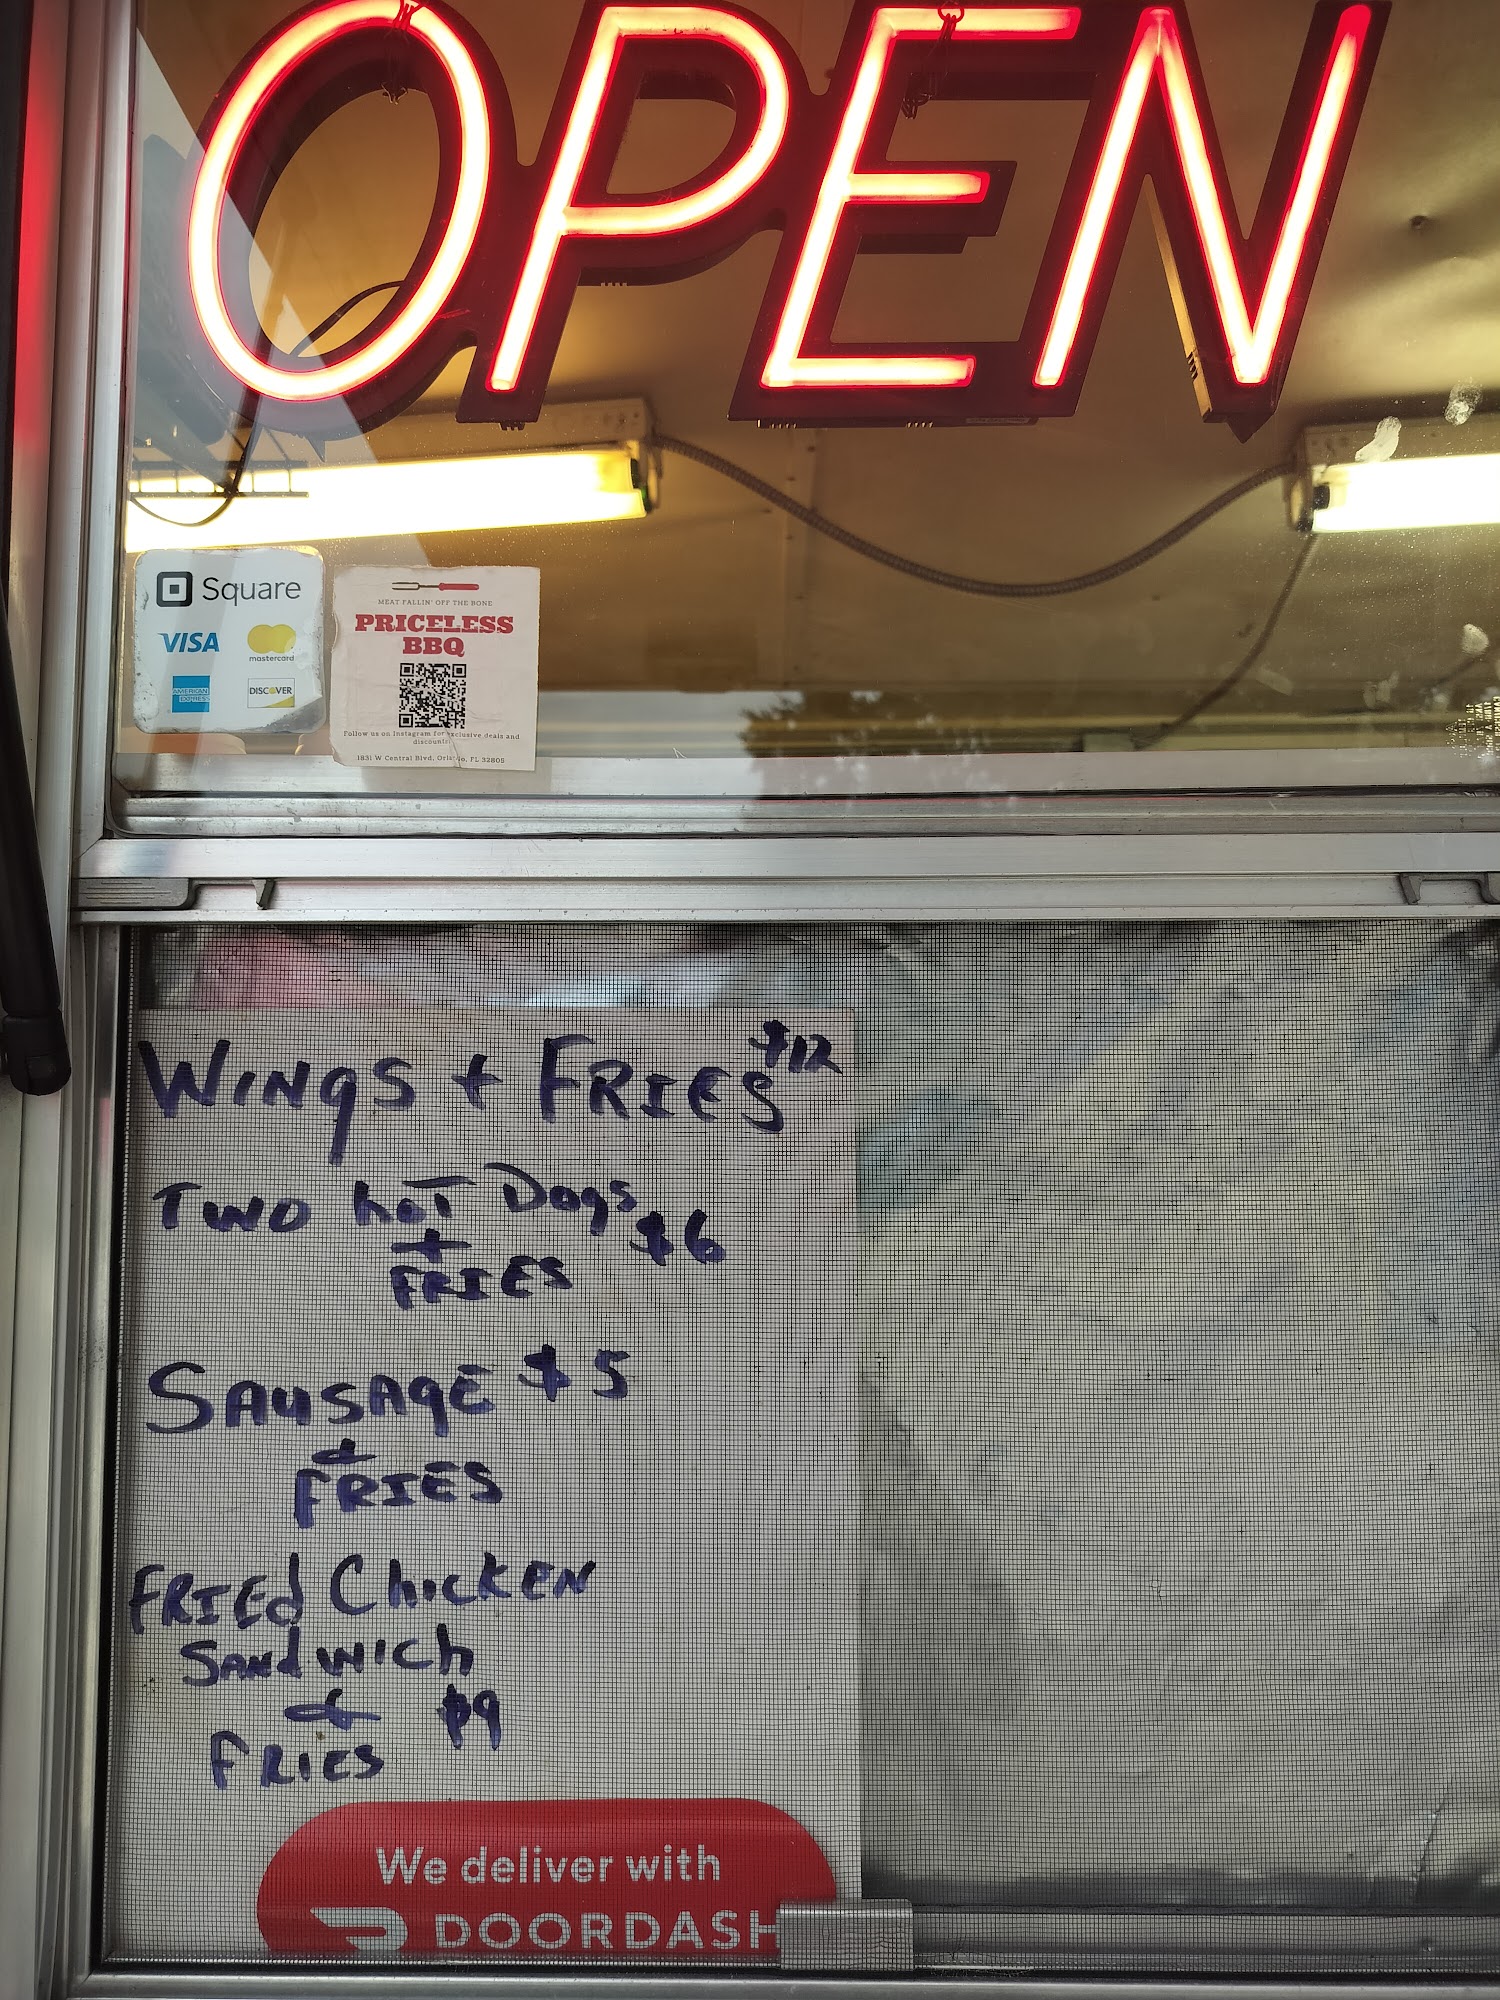 OPEN
Square
VISA
mastercard
AMERICAN EXPRESS
DISCOVER
MEAT FALLIN' OFF THE BONE
PRICELESS
BBQ
Follow us on Instagram for exclusive deals and
discounts
1831 W Central Blvd, Orlando, FL 32805
WINgS + FRIES $12
TWO hoT Dogs
+ $6
FRIES
SAUSAgE $5
&
FRIES
FRIEd ChicKEN
SANdwich
& $9
FRIES
We deliver with
DOORDASH